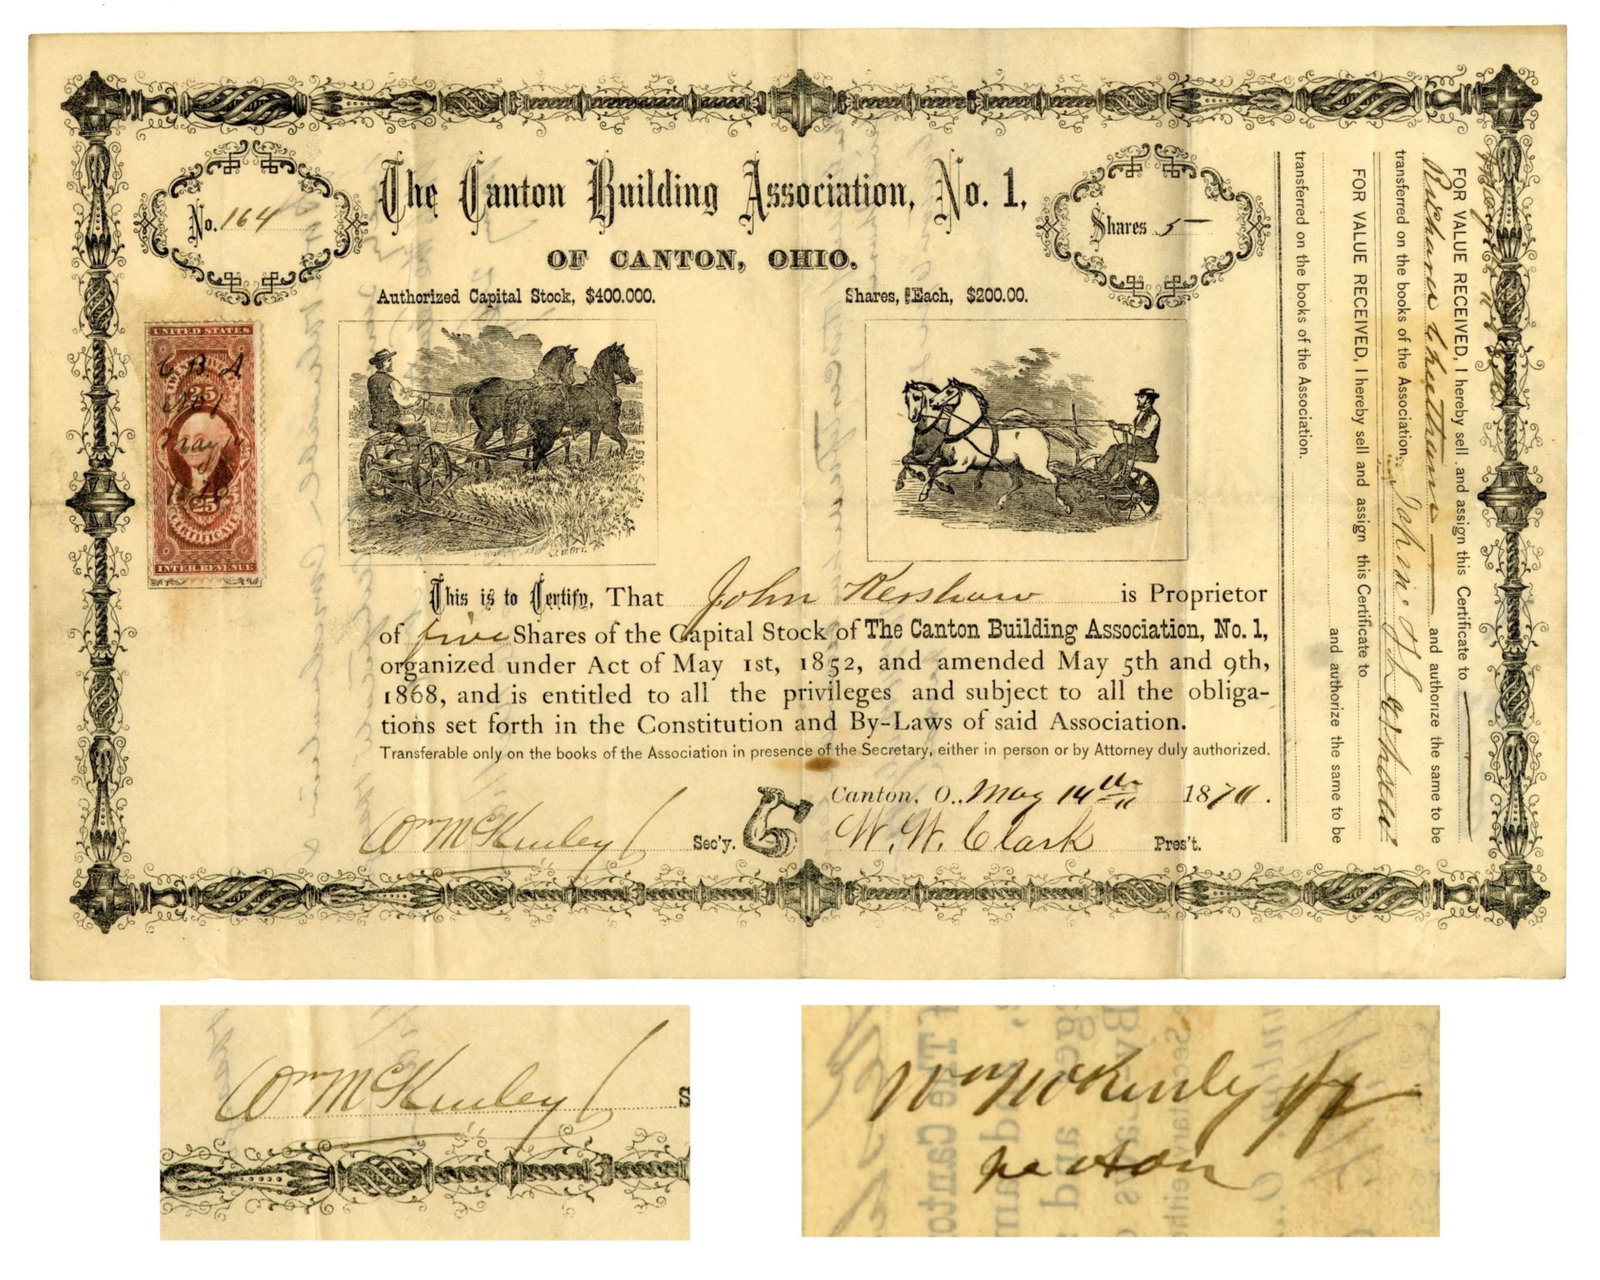 No. 164
The Canton Building Association, No. 1,
Shares 5
OF CANTON, OHIO.
Authorized Capital Stock, $400.000.
Shares, Each, $200.00.
UNITED STATES
25
C B A
No 1
May 14
1870
25
CERTIFICATE
INTER. REVENUE
This is to Certify, That John Kershaw is Proprietor
of five Shares of the Capital Stock of The Canton Building Association, No. 1,
organized under Act of May 1st, 1852, and amended May 5th and 9th,
1868, and is entitled to all the privileges and subject to all the obliga-
tions set forth in the Constitution and By-Laws of said Association.
Transferable only on the books of the Association in presence of the Secretary, either in person or by Attorney duly authorized.
Canton, O., May 14th 1870.
Wm McKinley Sec'y.
W. W. Clark Pres't.
FOR VALUE RECEIVED, I hereby sell and assign this Certificate to
and authorize the same to be
transferred on the books of the Association.
John Kershaw
FOR VALUE RECEIVED, I hereby sell and assign this Certificate to
and authorize the same to be
transferred on the books of the Association.
Wm McKinley
S
Wm McKinley Jr